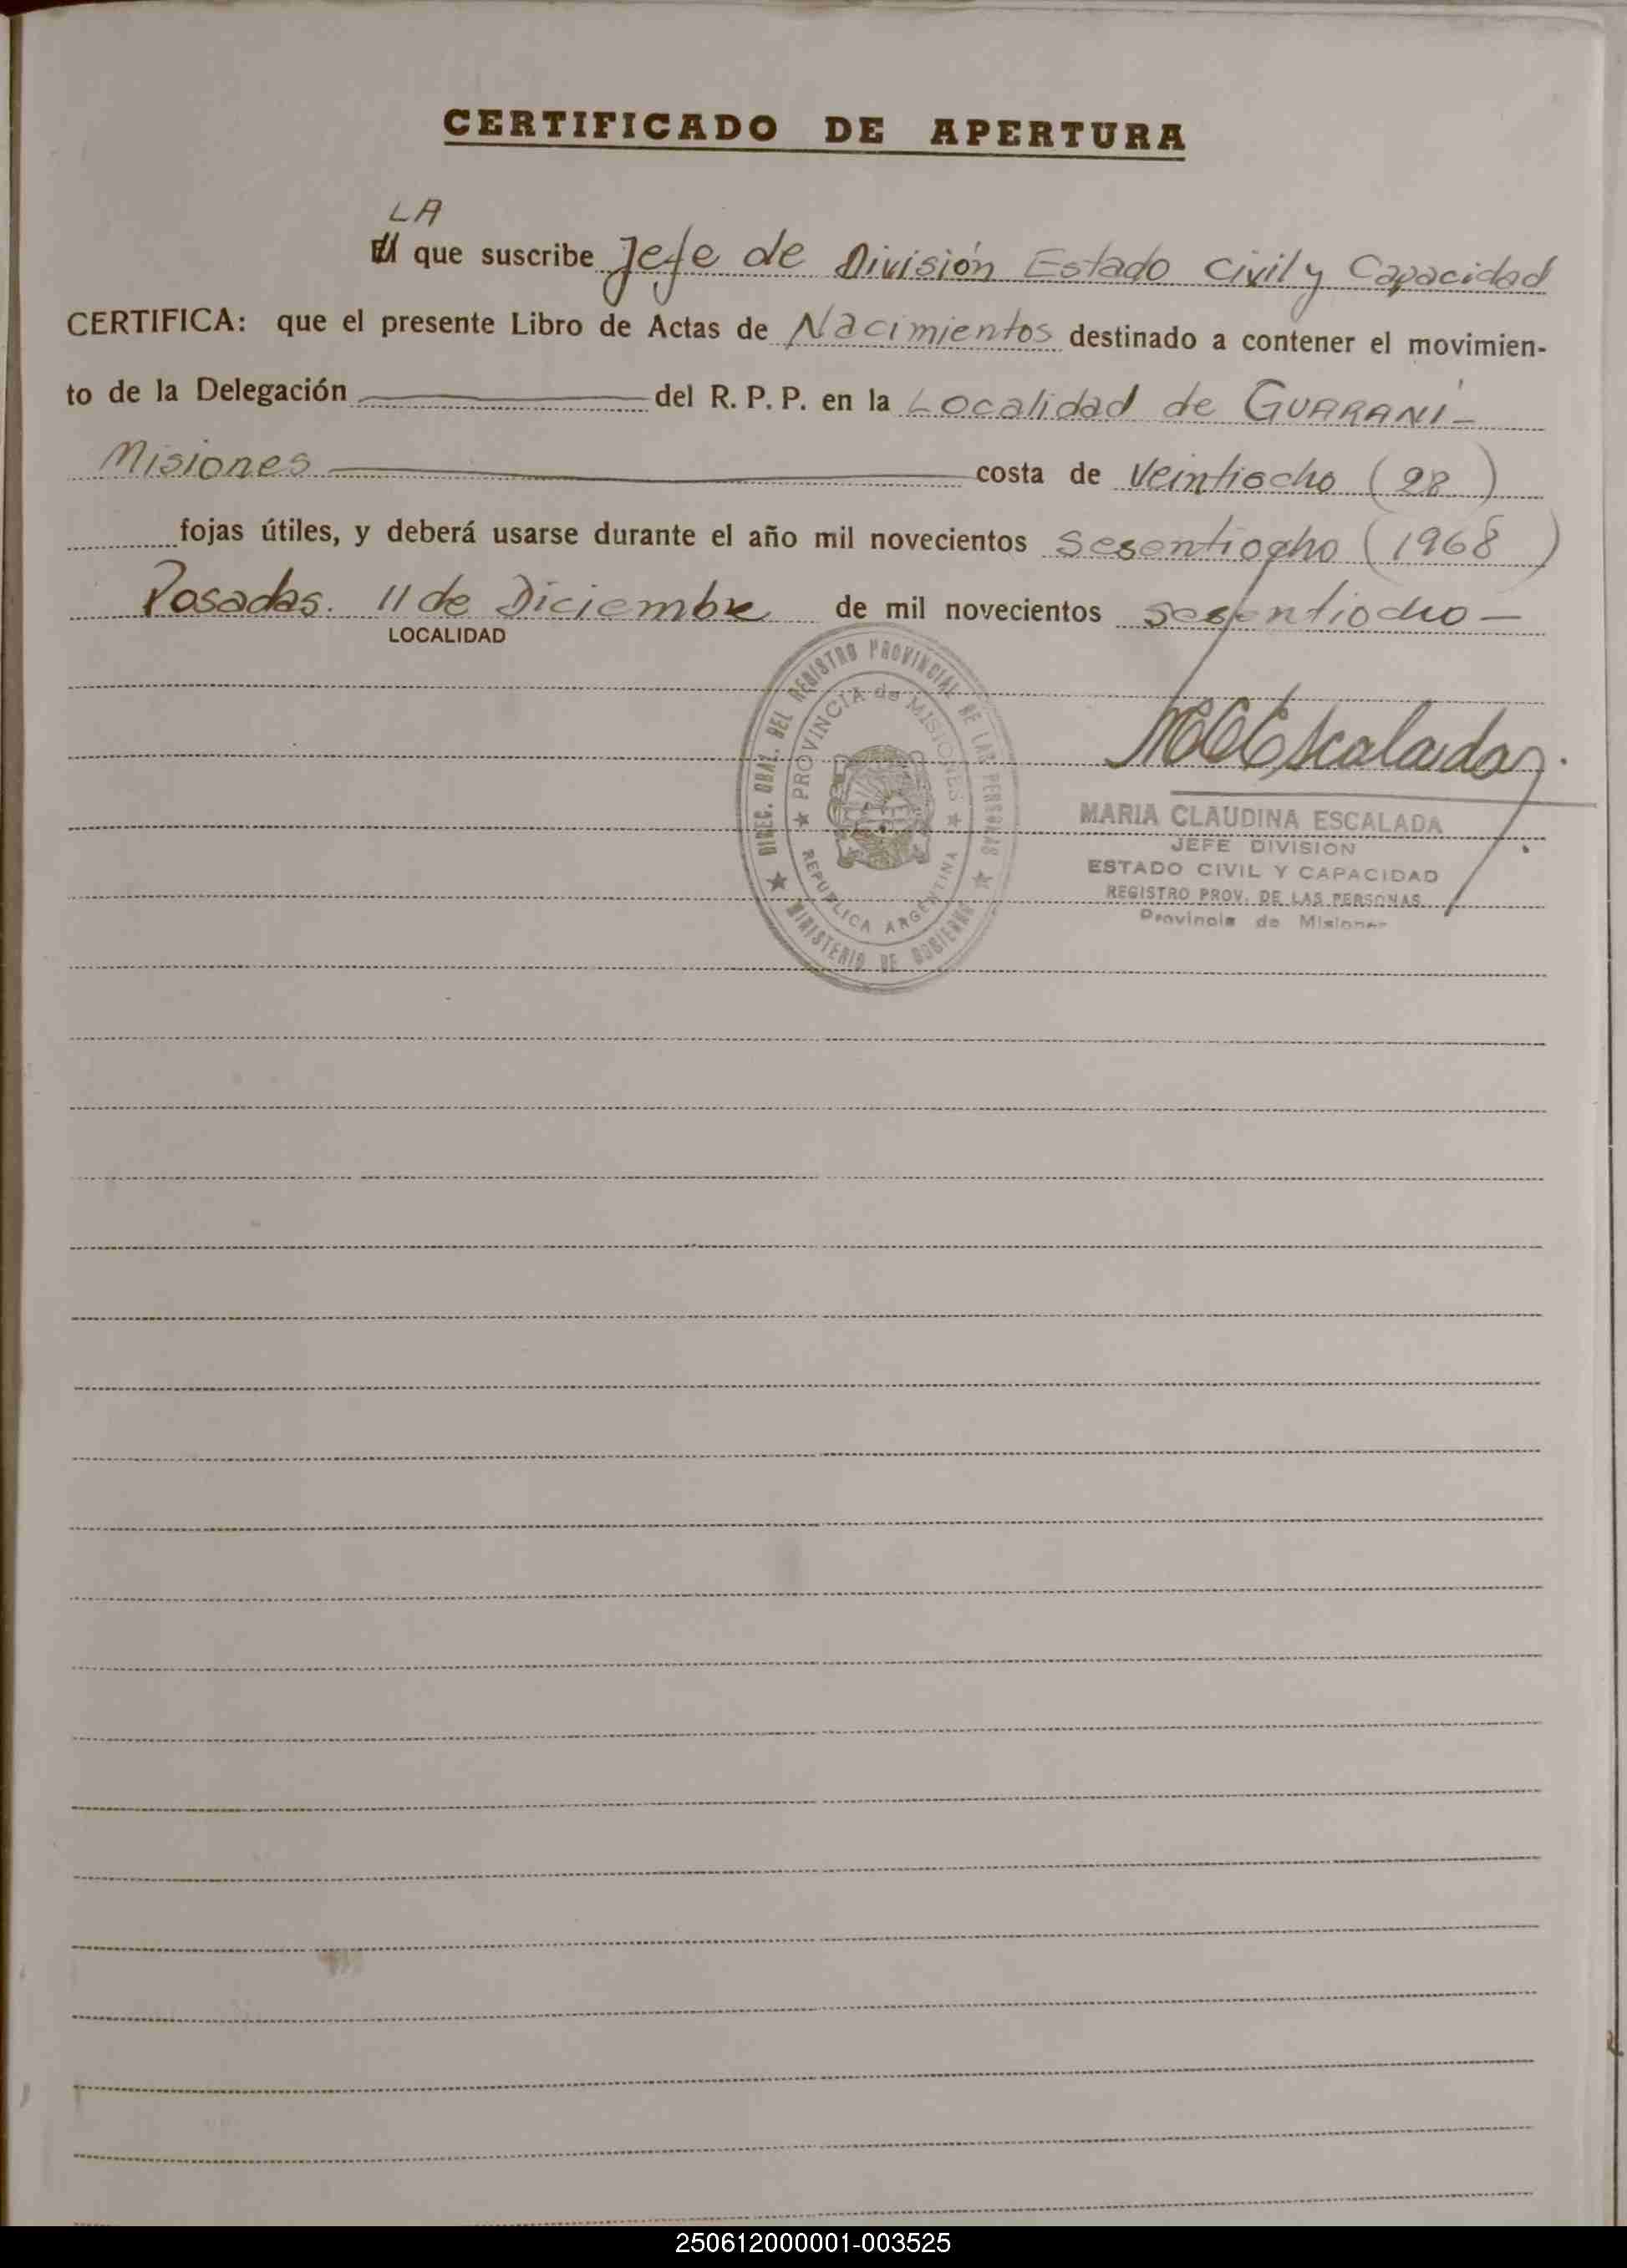 CERTIFICADO DE APERTURA
LA
El que suscribe Jefe de División Estado Civil y Capacidad
CERTIFICA: que el presente Libro de Actas de Nacimientos destinado a contener el movimien-
to de la Delegación del R. P. P. en la Localidad de GUARANÍ -
Misiones costa de Veintiocho (28)
fojas útiles, y deberá usarse durante el año mil novecientos Sesentiocho (1968)
Posadas. 11 de Diciembre de mil novecientos sesentiocho —
LOCALIDAD
DIREC. GRAL. DEL REGISTRO PROVINCIAL DE LAS PERSONAS
PROVINCIA de MISIONES
REPUBLICA ARGENTINA
MINISTERIO DE GOBIERNO
MCEscalada
MARIA CLAUDINA ESCALADA
JEFE DIVISION
ESTADO CIVIL Y CAPACIDAD
REGISTRO PROV. DE LAS PERSONAS
Provincia de Misiones
250612000001-003525